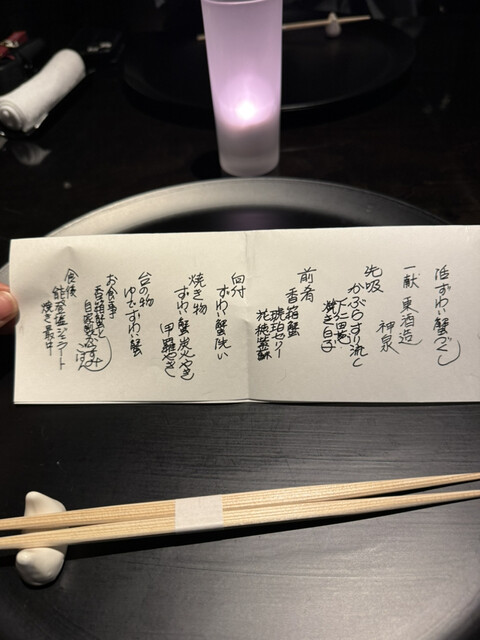 活ずわい蟹づくし
一献 東酒造
神泉
先吸
かぶらすり流し
下仁田葱
焼き白子
前肴
香箱蟹
琥珀ゼリー
向付
ずわい蟹洗い
焼き物
ずわい蟹炭火やき
甲羅やき
台の物
ゆでずわい蟹
お食事
香箱蟹と
ごはん
食後
能登塩ジェラート
焼き最中